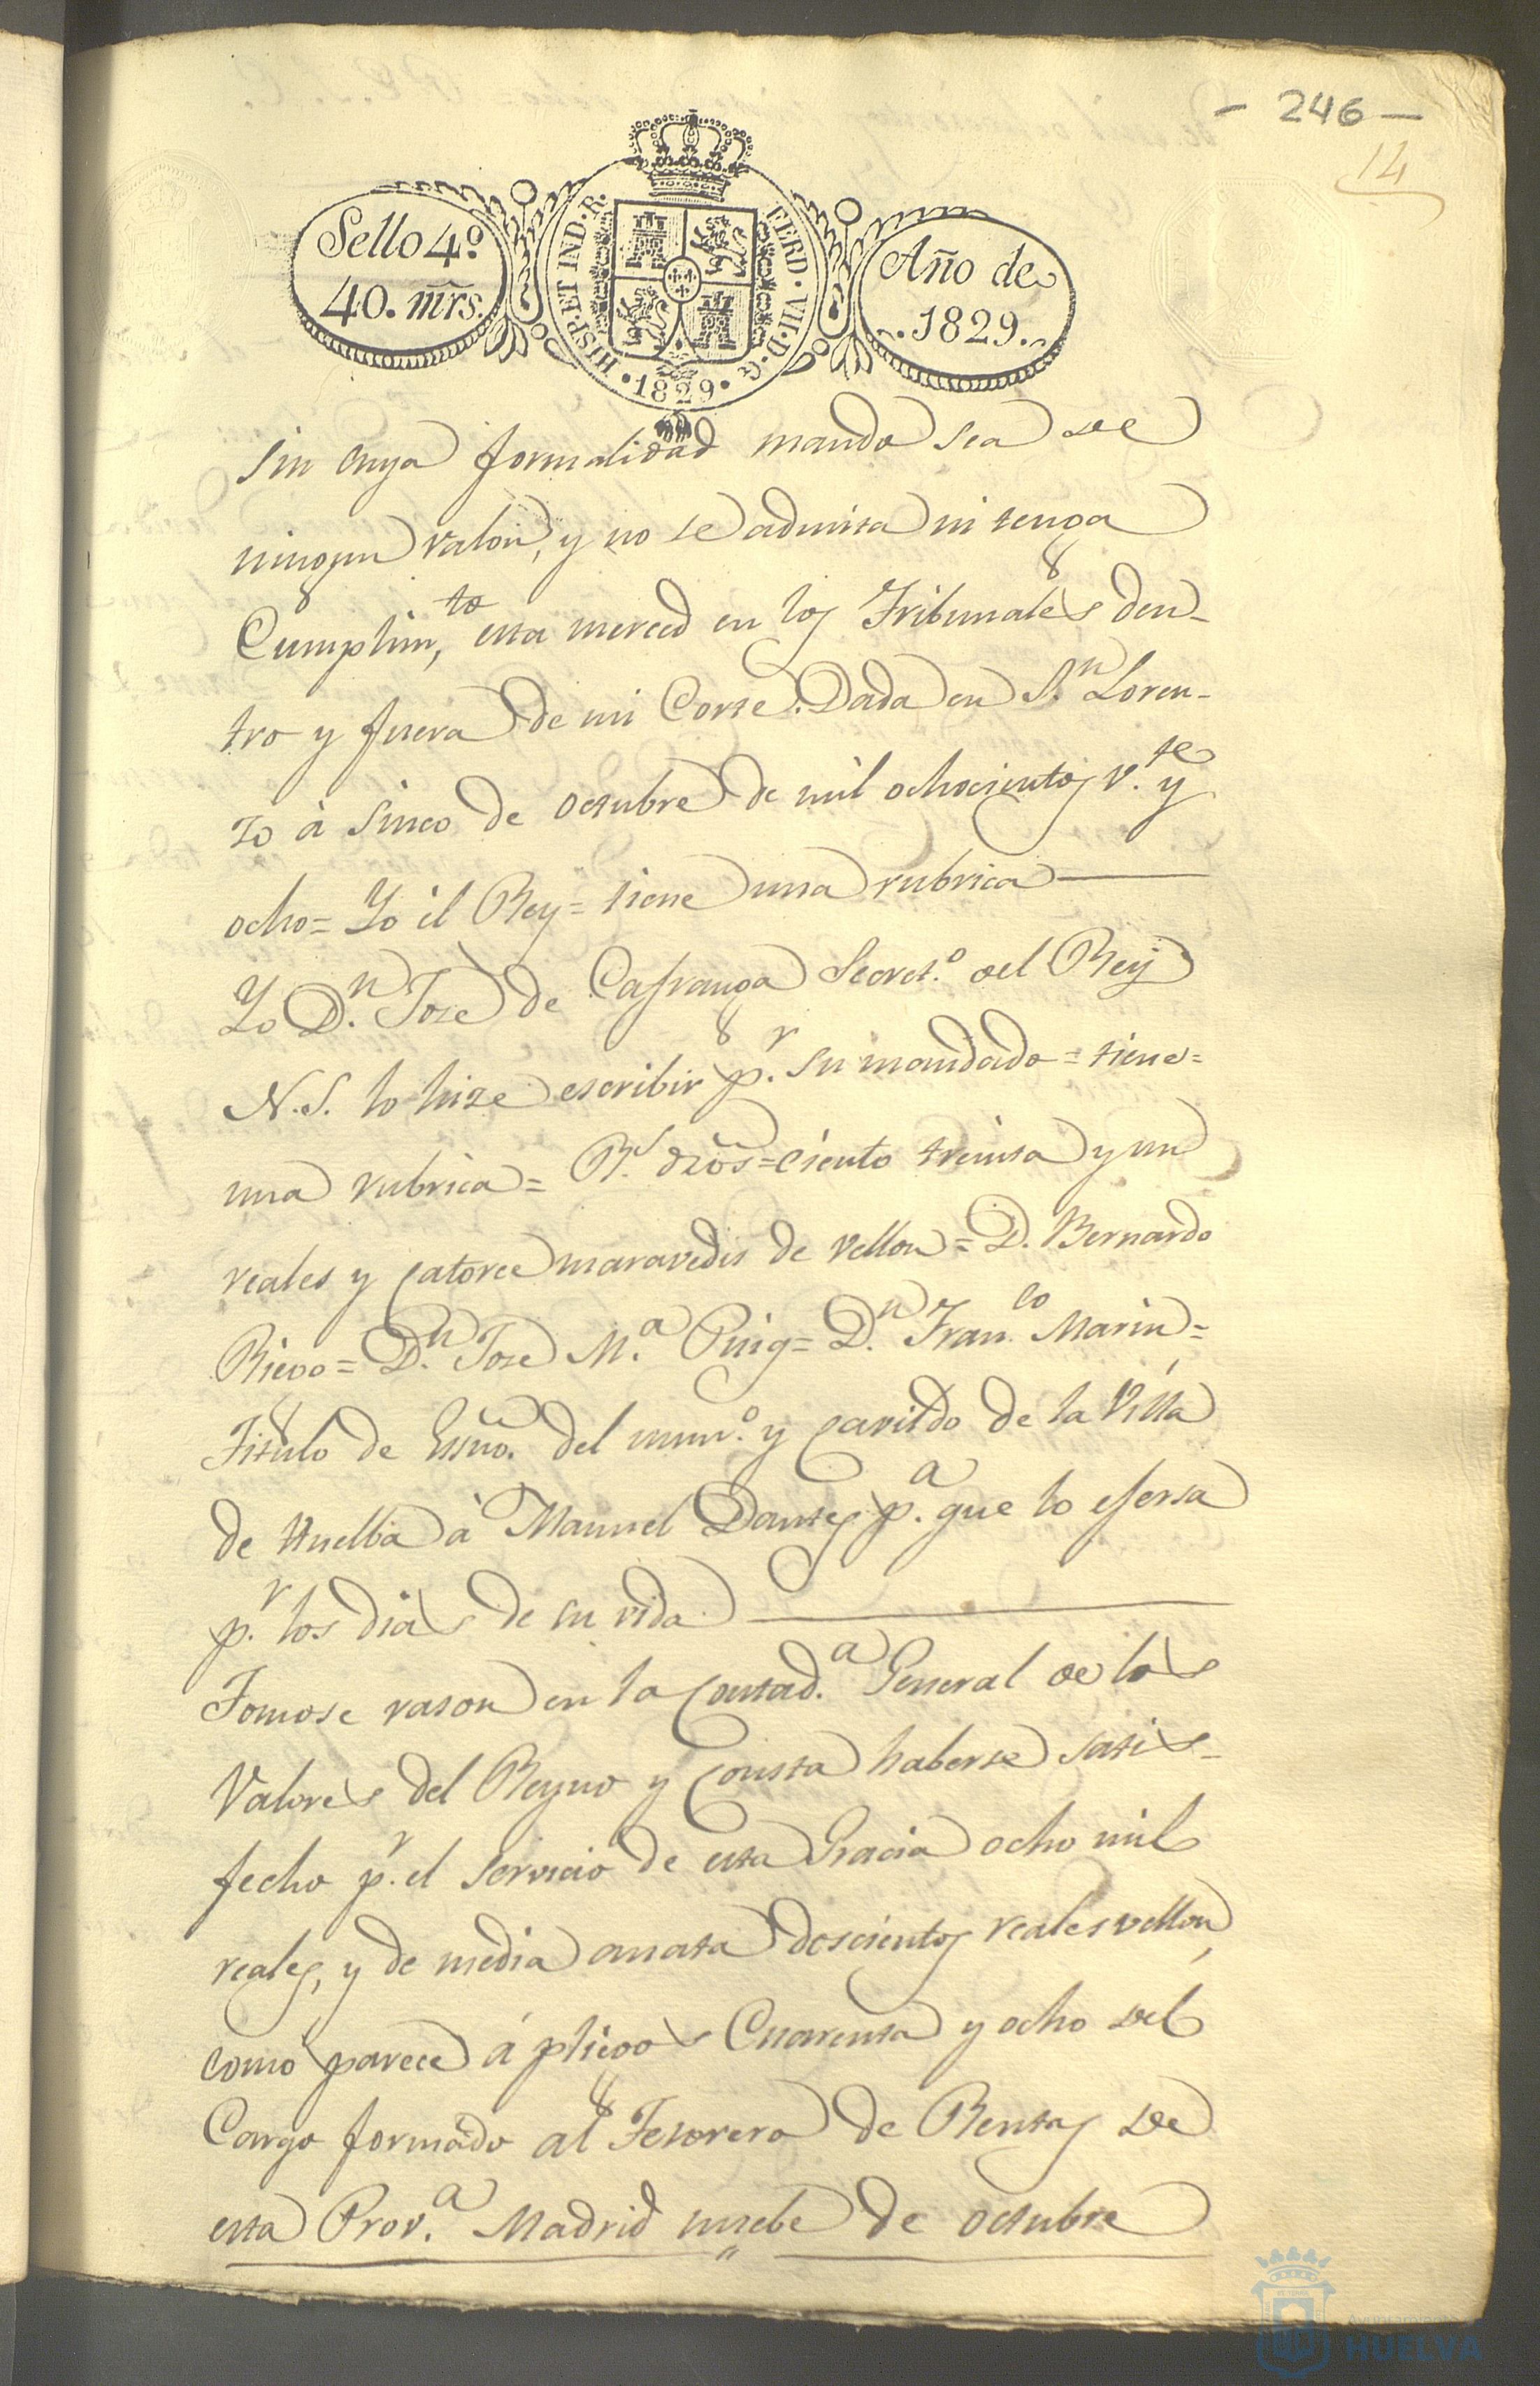 - 246 -
14
Sello 4º
40. mrs.
HISP. ET IND. R. FERD. VII. D. G. 1829
Año de
1829
sin cuya formalidad mando sea de
ningun valor, y no se admita ni tenga
Cumplim,to esta merced en los Tribunales den-
tro y fuera de mi Corte. Dada en S.n Loren-
zo á Sinco de Octubre de mil ochocientos v.te y
ocho = Yo él Rey = tiene una rubrica
Yo D.n Jose de Cafranga Secret.o del Rey
N.S. lo hize escribir p.r su mandado = tiene =
una rubrica = R.s dros = ciento treinta y un
reales y catorce maravedis de vellon = D. Bernardo
Riego = D.n Jose M.a Puig = D.n Fran.co Marin =
Titulo de Essno. del num.o y cavildo de la Villa
de Huelba á Manuel Dantes p.a que lo ejersa
p.r los dias de su vida
Tomose rason en la contad.a General de los
Valores del Reyno y consta haberse satis-
fecho p.r el servicio de esta Gracia ocho mil
reales, y de media annata doscientos reales vellon,
como parece á pliegos Cuarenta y ocho del
Cargo formado al Tesorero de Rentas de
esta Prov.a Madrid nuebe de octubre
Ayuntamiento
HUELVA